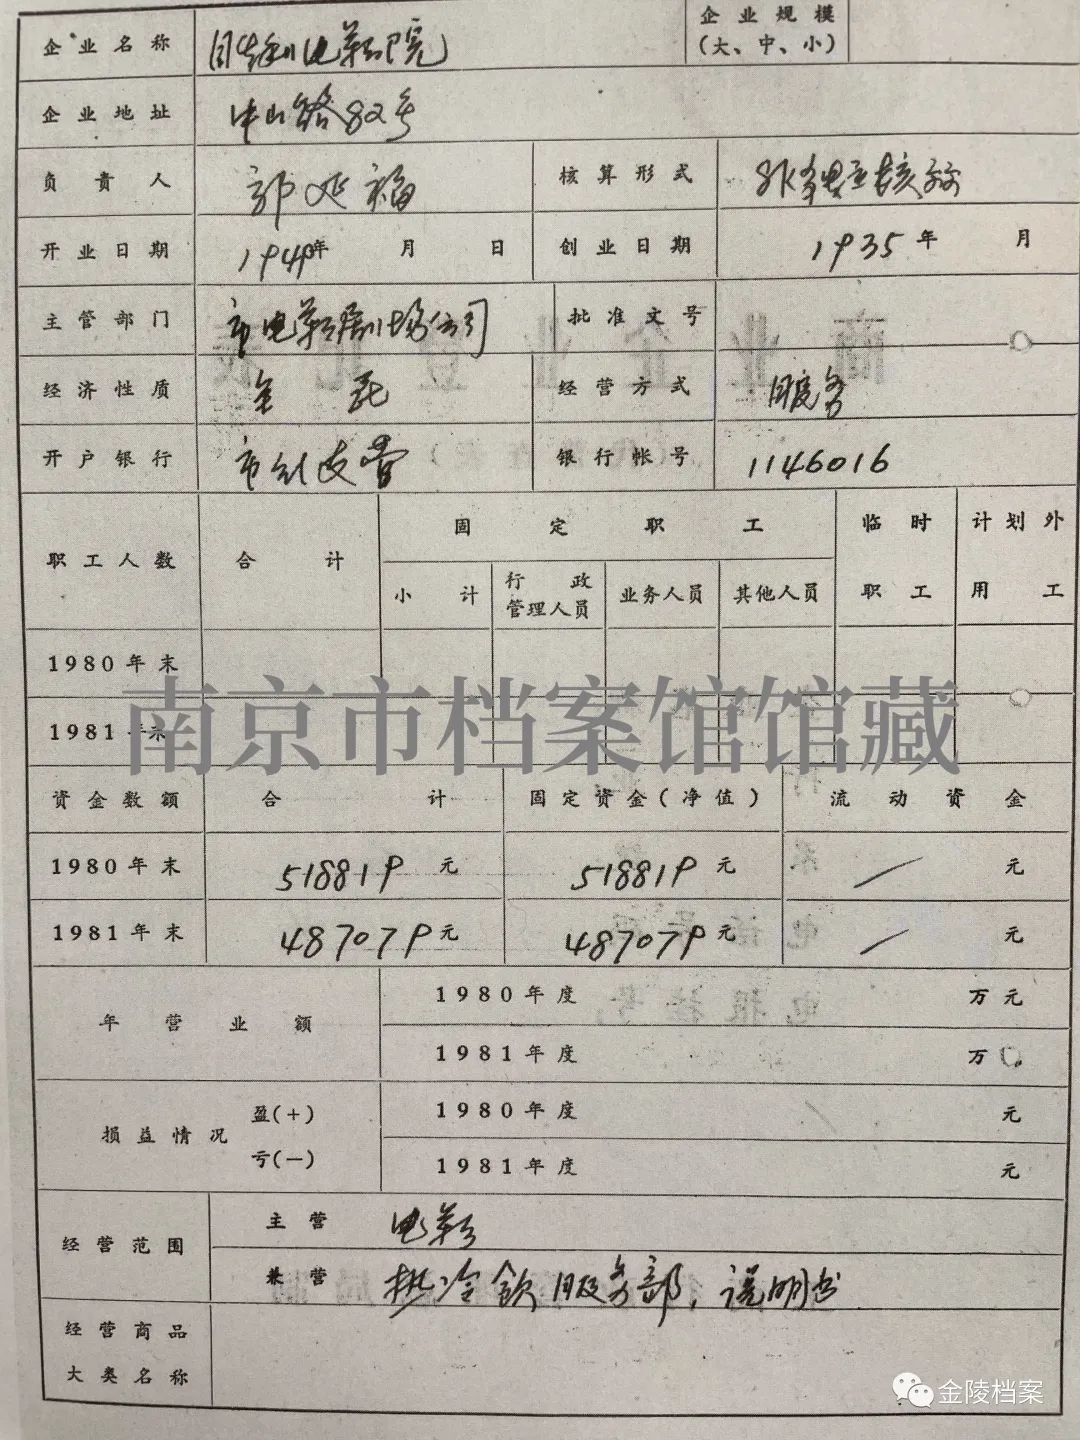 企业名称 胜利电影院 企业规模
(大、中、小)
企业地址 中山路82号
负责人 郭延福 核算形式 独立核算
开业日期 1949年 月 日 创业日期 1935年 月
主管部门 市电影剧场公司 批准文号
经济性质 全民 经营方式 服务
开户银行 市分改营 银行帐号 1146016
职工人数 合计 固定职工 临时 计划外
小计 行政 业务人员 其他人员 职工 用工
管理人员
1980年末
1981年末
南京市档案馆馆藏
资金数额 合计 固定资金(净值) 流动资金
1980年末 518819元 518819元 / 元
1981年末 487079元 487079元 / 元
年营业额 1980年度 万元
1981年度 万
损益情况 盈(+) 1980年度 元
亏(一) 1981年度 元
经营范围 主营 电影
兼营 热冷饮服务部、说明书
经营商品
大类名称
金陵档案